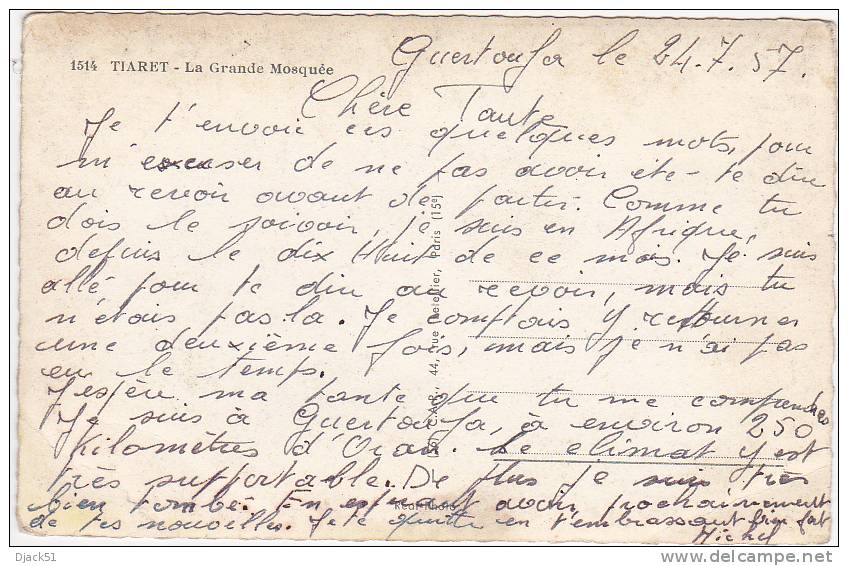 1514 TIARET - La Grande Mosquée
Guertoufa le 24.7.57.
Chère Tante
Je t'envoie ces quelques mots, pour
m'excuser de ne pas avoir été te dire
au revoir avant de partir. Comme tu
dois le savoir, je suis en Afrique,
depuis le dix Huit de ce mois. Je suis
allé pour te dire au revoir, mais tu
n'étais pas la. Je comptais y retourner
une deuxième fois, mais je n'ai pas
eu le temps.
J'espère ma tante que tu me comprendras
Je suis à Guertoufa, à environ 250
Kilomètres d'Oran. Le climat y est
très supportable. De plus je suis très
bien tombé. En espérant avoir prochainement
de tes nouvelles. Je te quitte en t'embrassant bien fort
Michel
C.A.P., 44, rue Letellier, Paris (15e)
Real-Photo
Djack51
delcampe.net